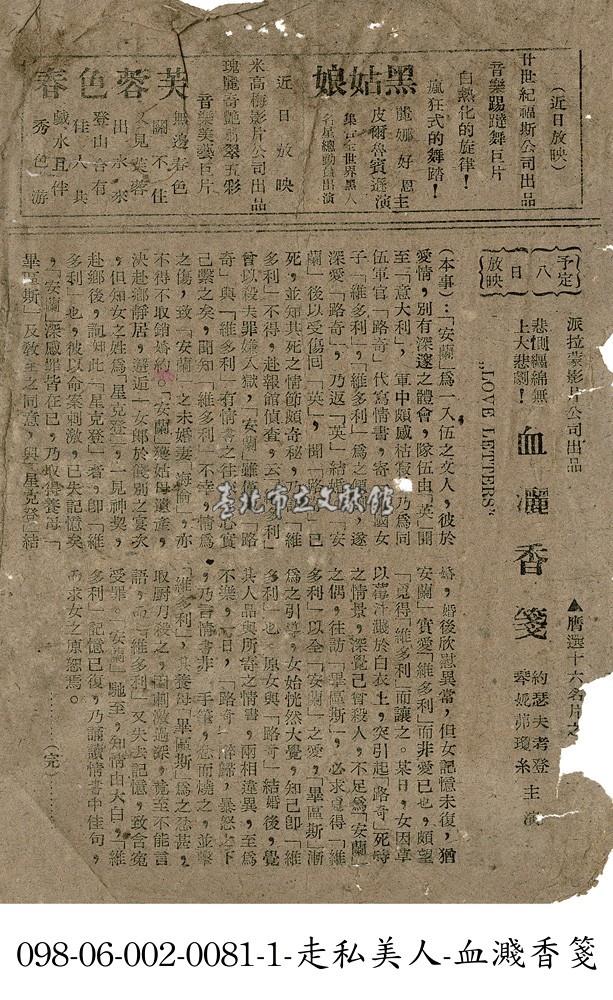 (近日放映)
廿世紀福斯公司出品
音樂踢躂舞巨片
白熱化的旋律!
瘋狂式的舞踏!
黑姑娘
麗娜好恩主
皮爾魯賓遜演
集合全世界黑人
名星總動員出演
近日放映
米高梅影片公司出品
瑰麗奇艷翡翠五彩
音樂美藝巨片
芙蓉色春
無邊春色
關不住
又見芙蓉
出水來
登山合有
佳人共
戲水且伴
秀色游
予定
八日
放映
派拉蒙影片公司出品
悲惻纒綿無
上大悲劇!
血灑香箋
"LOVE LETTERS"
▲膺選十六名片之一
約瑟夫考登
蓉妮茀瓊絲
主演
(本事):「安蘭」爲一入伍之文人,彼於
愛情,別有深邃之體會,隊伍由「英」開
至「意大利」,軍中頗感枯寂,乃爲同
伍軍官「路奇」代寫情書,寄英國女
子「維多利」,「維多利」爲之傾倒,遂
深愛「路奇」,乃返「英」結婚,「安
蘭」後以受傷回「英」,聞「路奇」已
死,並知其死之情節頗奇秘,乃訪「維
多利」不得,赴報館偵查,云「維多利」
曾以殺夫罪嫌入獄,「安蘭」雖僅以「路
奇」與「維多利」有情書之往還,而心實
己繫之矣,聞知「維多利」不幸,情爲
之傷,致「安蘭」之未婚妻「海倫」,亦
不得不取銷婚約。「安蘭」獲姑母遺產,
決赴鄉靜居,邂逅一女郎於餞別之宴次
,但知女之姓爲「星克登」,一見神契,
赴鄉後,詢知此「星克登」者,即「維
多利」也,彼以命案刺激,已失記憶矣
,「安蘭」深感罪皆在已,乃取得養母「
畢區斯」及敎主之同意,與「星克登」結
婚,婚後欣慰異常,但女記憶未復,猶
安蘭」實愛「維多利」而非愛己也,頗望
「覓得「維多利」而讓之。某日,女因草
以莓汁濺於白衣上,突引起「路奇」死時
之情景,深覺己曾殺人,不足爲「安蘭」
之偶,往訪「畢區斯」,必求覓得「維
多利」以全「安蘭」之愛,「畢區斯」漸
爲之引導,女始恍然大覺,知己即「維
多利」也。原女與「路奇」結婚後,覺
其人品與所寄之情書,兩相違異,至爲
不樂,一日,「路奇」醉歸,暴怒之下
,乃言情書非一手筆,忿而燒之,並擊
「維多利」,其養母「畢區斯」爲之忿甚,
取厨刀殺之,因刺激過深,竟至不能言
語,而「維多利」又失去記憶,致含寃
受罪。「安蘭」馳至,知情由大白,「維
多利」記憶已復,乃誦讀情書中佳句,
而求女之原恕焉。
………(完)………
臺北市立文献館
098-06-002-0081-1-走私美人-血濺香箋